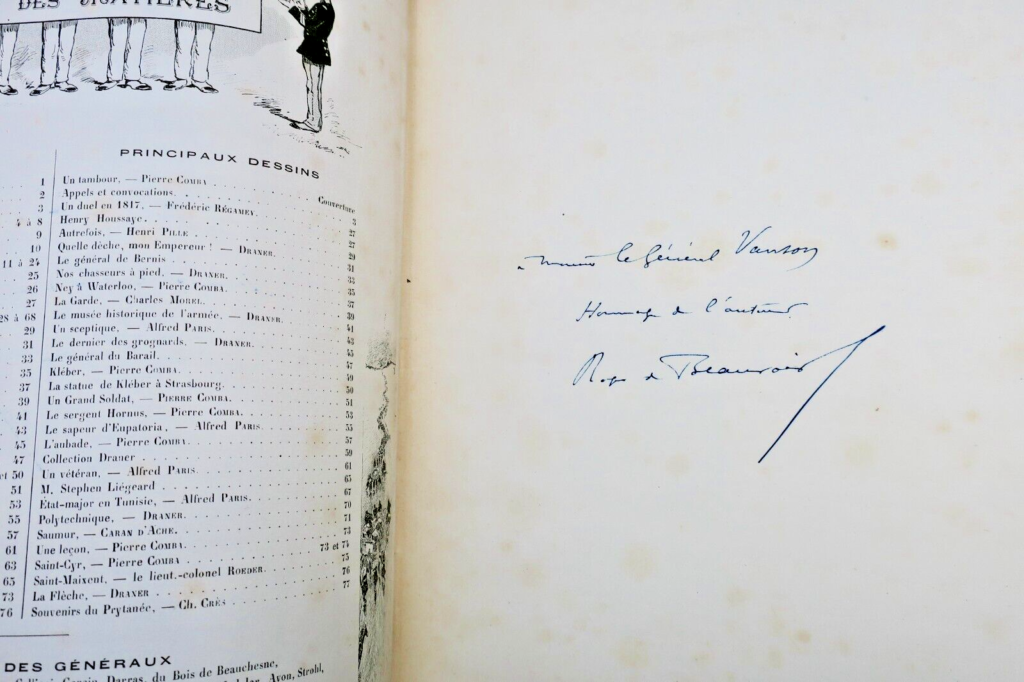 DES MATIÈRES
PRINCIPAUX DESSINS
Couverture
1 Un tambour, — Pierre COMBA
2 Appels et convocations. 3
3 Un duel en 1817, — Frédéric RÉGAMEY. 27
4 à 8 Henry Houssaye. 27
9 Autrefois, — Henri PILLE 27
10 Quelle dèche, mon Empereur ! — DRANER. 29
11 à 24 Le général de Bernis 31
25 Nos chasseurs à pied, — DRANER. 33
26 Ney à Waterloo, — Pierre COMBA 35
27 La Garde, — Charles MOREL. 37
28 à 68 Le musée historique de l'armée, — DRANER. 39
29 Un sceptique, — Alfred PARIS. 41
31 Le dernier des grognards, — DRANER. 43
33 Le général du Barail. 45
35 Kléber, — Pierre COMBA. 47
37 La statue de Kléber à Strasbourg. 49
39 Un Grand Soldat, — PIERRE COMBA. 50
41 Le sergent Hornus, — Pierre COMBA. 51
43 Le sapeur d'Eupatoria, — Alfred PARIS. 53
45 L'aubade, — Pierre COMBA 55
47 Collection Draner 57
et 50 Un vétéran, — Alfred PARIS. 59
51 M. Stephen Liégeard 61
53 État-major en Tunisie, — Alfred PARIS. 65
55 Polytechnique, — DRANER. 67
57 Saumur, — CARAN D'ACHE. 70
61 Une leçon, — Pierre COMBA. 71
63 Saint-Cyr, — Pierre COMBA 73
65 Saint-Maixent, — le lieut.-colonel ROEDER. 73 et 74
73 La Flèche, — DRANER 75
76 Souvenirs du Prytanée, — Ch. CRÈS 76
77
DES GÉNÉRAUX
Darras, du Bois de Beauchesne,
Avon, Strohl,
le Général Vanson
Hommage de l'auteur
Roger de Beauvoir